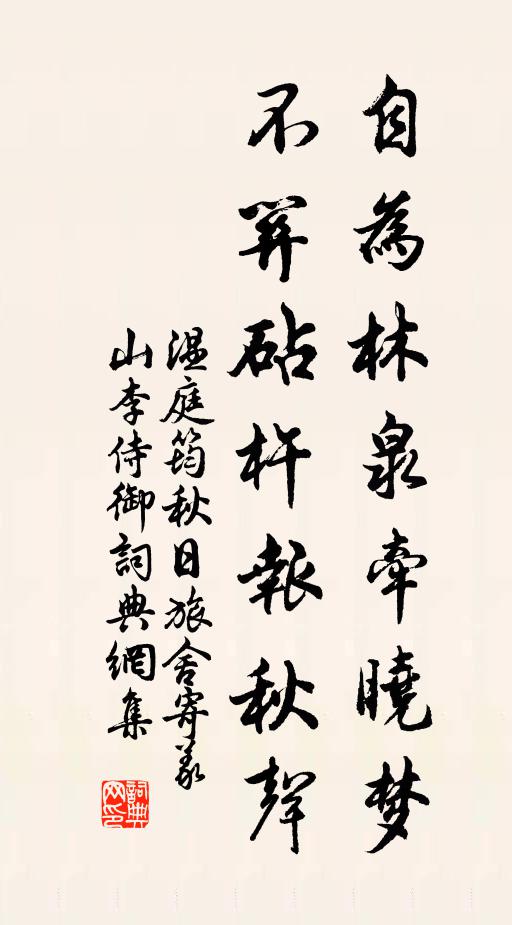 自為林泉牽曉梦
不關砧杵報秋聲
温庭筠秋日旅舍寄義
山李侍御詞典網集
詞典
网印